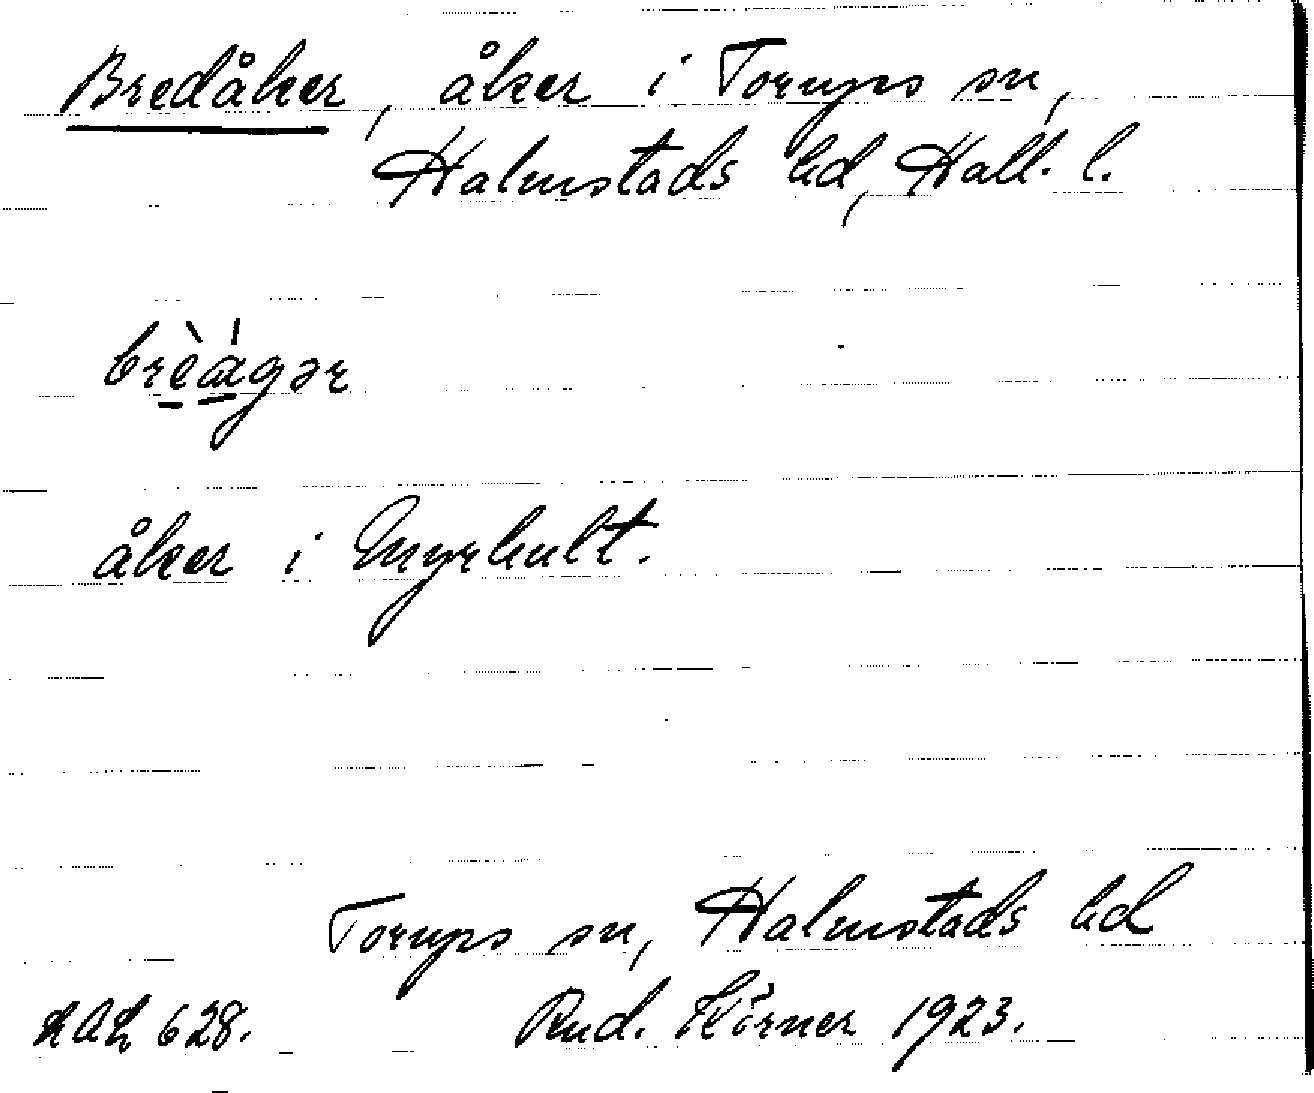 Bredåker, åker i Torups sn,
Halmstads hd, Hall. l.
brèágər
åker i Myrhult.
Torups sn, Halmstads hd
628. Rud. Körner 1923.